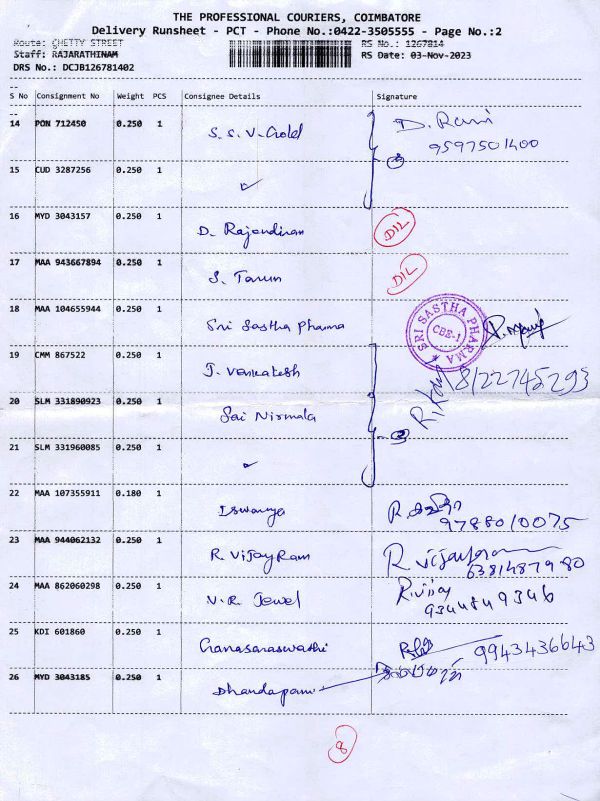 THE PROFESSIONAL COURIERS, COIMBATORE
Delivery Runsheet - PCT - Phone No.:0422-3505555 - Page No.:2
Route: CHETTY STREET RS No.: 1267814
Staff: RAJARATHINAM RS Date: 03-Nov-2023
DRS No.: DCJB126781402
--
S No Consignment No Weight PCS Consignee Details Signature
--
14 PON 712450 0.250 1 S.S.V. Gold D. Rani
9597501400
15 CUD 3287256 0.250 1 ✓
16 MYD 3043157 0.250 1 D. Rajendiran DIL
17 MAA 943667894 0.250 1 S. Tarun DIL
18 MAA 104655944 0.250 1 Sri Sastha Pharma SRI SASTHA PHARMA CBE-1
19 CMM 867522 0.250 1 J. Venkatesh 8122745293
20 SLM 331890923 0.250 1 Sai Nirmala
21 SLM 331960085 0.250 1 ✓
22 MAA 107355911 0.180 1 Iswarya
9788010075
23 MAA 944062132 0.250 1 R. VijayRam R. vijayram
6381487980
24 MAA 862060298 0.250 1 V.R. Jewel R.vijay
9344849346
25 KDI 601860 0.250 1 Gnanasaraswathi 9943436643
26 MYD 3043185 0.250 1 Dhandapani
8